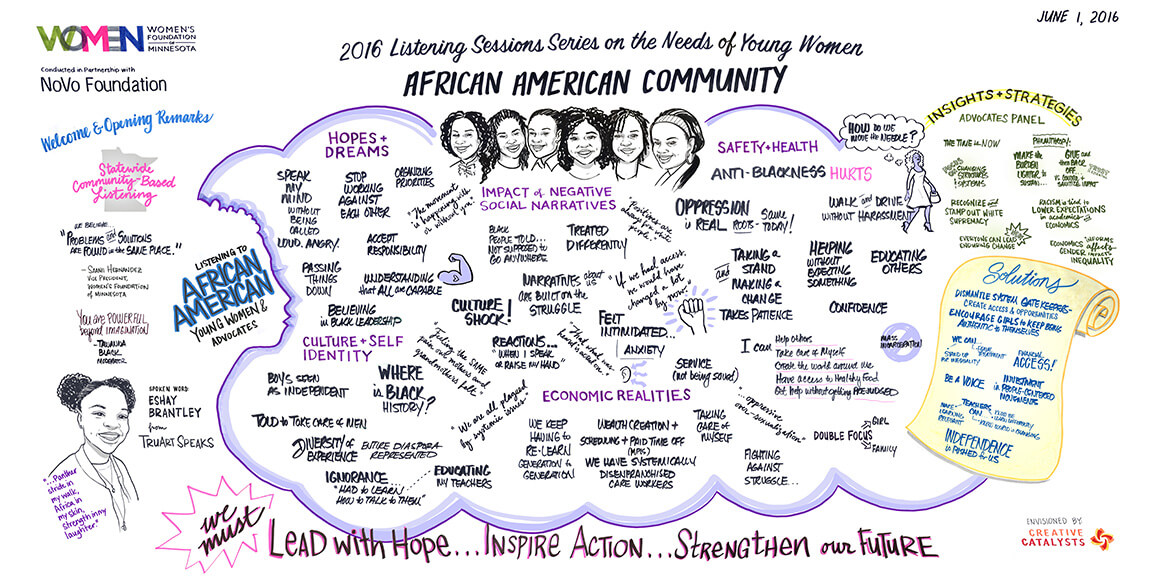 JUNE 1, 2016
WOMEN
WOMEN'S
FOUNDATION
OF
MINNESOTA
Conducted in Partnership with
NoVo Foundation
2016 Listening Sessions Series on the Needs of Young Women
AFRICAN AMERICAN COMMUNITY
Welcome & Opening Remarks
Statewide
Community-Based
Listening
WE BELIEVE...
"PROBLEMS and SOLUTIONS
ARE FOUND in the SAME PLACE."
HERNANDEZ
VICE PRESIDENT,
WOMEN'S FOUNDATION
OF MINNESOTA
YOU are POWERFUL
beyond IMAGINATION!
BLACK
SPOKEN WORD:
ESHAY
BRANTLEY
from
TRUART SPEAKS
"...Panther
stride in
my walk,
Africa in
my skin,
strength in my
laughter"
LISTENING TO
AFRICAN
AMERICAN
YOUNG WOMEN &
ADVOCATES
HOPES +
DREAMS
SPEAK
MY
MIND
WITHOUT
BEING
CALLED
LOUD, ANGRY.
STOP
WORKING
AGAINST
EACH OTHER
ORGANIZING
PRIORITIES
"The movement
is happening with
or without you."
ACCEPT
RESPONSIBILITY
PASSING
THINGS
DOWN!
UNDERSTANDING
that ALL are CAPABLE
BELIEVING
in BLACK LEADERSHIP
IMPACT of NEGATIVE
SOCIAL NARRATIVES
BLACK
PEOPLE TOLD...
NOT SUPPOSED TO
GO ANYWHERE
TREATED
DIFFERENTLY
"Positives are
always for white
people."
CULTURE
SHOCK!
NARRATIVES about us
ARE BUILT ON THE
STRUGGLE
"If we had access,
we would have
changed a lot
by now."
REACTIONS...
"WHEN I SPEAK
or RAISE MY HAND"
FELT
INTIMIDATED...
ANXIETY
SAFETY + HEALTH
ANTI-BLACKNESS HURTS
OPPRESSION
is REAL
ROOTS
SAME
TODAY!
WALK and DRIVE
WITHOUT HARASSMENT
and
TAKING A
STAND
MAKING A
CHANGE
TAKES PATIENCE
HELPING
WITHOUT
EXPECTING
SOMETHING
EDUCATING
OTHERS
CONFIDENCE
I can
Help others
Take care of Myself
Create the world around me
Have access to Healthy Food
Get help without getting PREJUDGED
MASS
INCARCERATION
SERVICE
(not being saved)
CULTURE + SELF
IDENTITY
BOYS SEEN
AS INDEPENDENT
WHERE
is BLACK
HISTORY?
"Feeling the same
pain our mothers and
grandmothers felt"
TOLD to TAKE CARE of MEN
DIVERSITY of
EXPERIENCE
ENTIRE DIASPORA
REPRESENTED
"We are all plagued
by systemic issues"
IGNORANCE...
"HAD to LEARN
HOW to TALK to THEM"
EDUCATING
MY TEACHERS
ECONOMIC REALITIES
WE KEEP
HAVING to
RE-LEARN
GENERATION to
GENERATION
WEALTH CREATION +
SCHEDULING + PAID TIME OFF
(MPLS)
WE HAVE SYSTEMICALLY
DISENFRANCHISED
CARE WORKERS
TAKING
CARE of
MYSELF
"...oppressive
over-sexualization"
FIGHTING
AGAINST
STRUGGLE...
DOUBLE FOCUS
GIRL
FAMILY
HOW DO WE
MOVE the NEEDLE?
INSIGHTS + STRATEGIES
ADVOCATES PANEL
THE TIME is NOW
CHANGING
STRUCTURES
SYSTEMS
PHILANTHROPY:
MAKE the
BURDEN
LIGHTER
GIVE and
then BACK
OFF
RECOGNIZE and
STAMP OUT WHITE
SUPREMACY
RACISM is tied to
LOWER EXPECTATIONS
in academics
ECONOMICS
EVERYONE CAN LEAD
ENDURING CHANGE
ECONOMICS INFORMS
affects
GENDER IMPACTS
INEQUALITY
Solutions
DISMANTLE SYSTEM GATE KEEPERS-
CREATE ACCESS & OPPORTUNITIES
ENCOURAGE GIRLS to KEEP BEING
AUTHENTIC to THEMSELVES
WE CAN...
STAND UP
TREATMENT
FINANCIAL
ACCESS!
BE A VOICE
INVESTMENT
in PEOPLE-CENTERED
MOVEMENTS
MAKE
LEARNING
RELEVANT
TEACHERS
CAN
INDEPENDENCE
is PUSHED for US
we
must
LEAD with HOPE...INSPIRE ACTION...STRENGTHEN our FUTURE
ENVISIONED BY:
CREATIVE
CATALYSTS